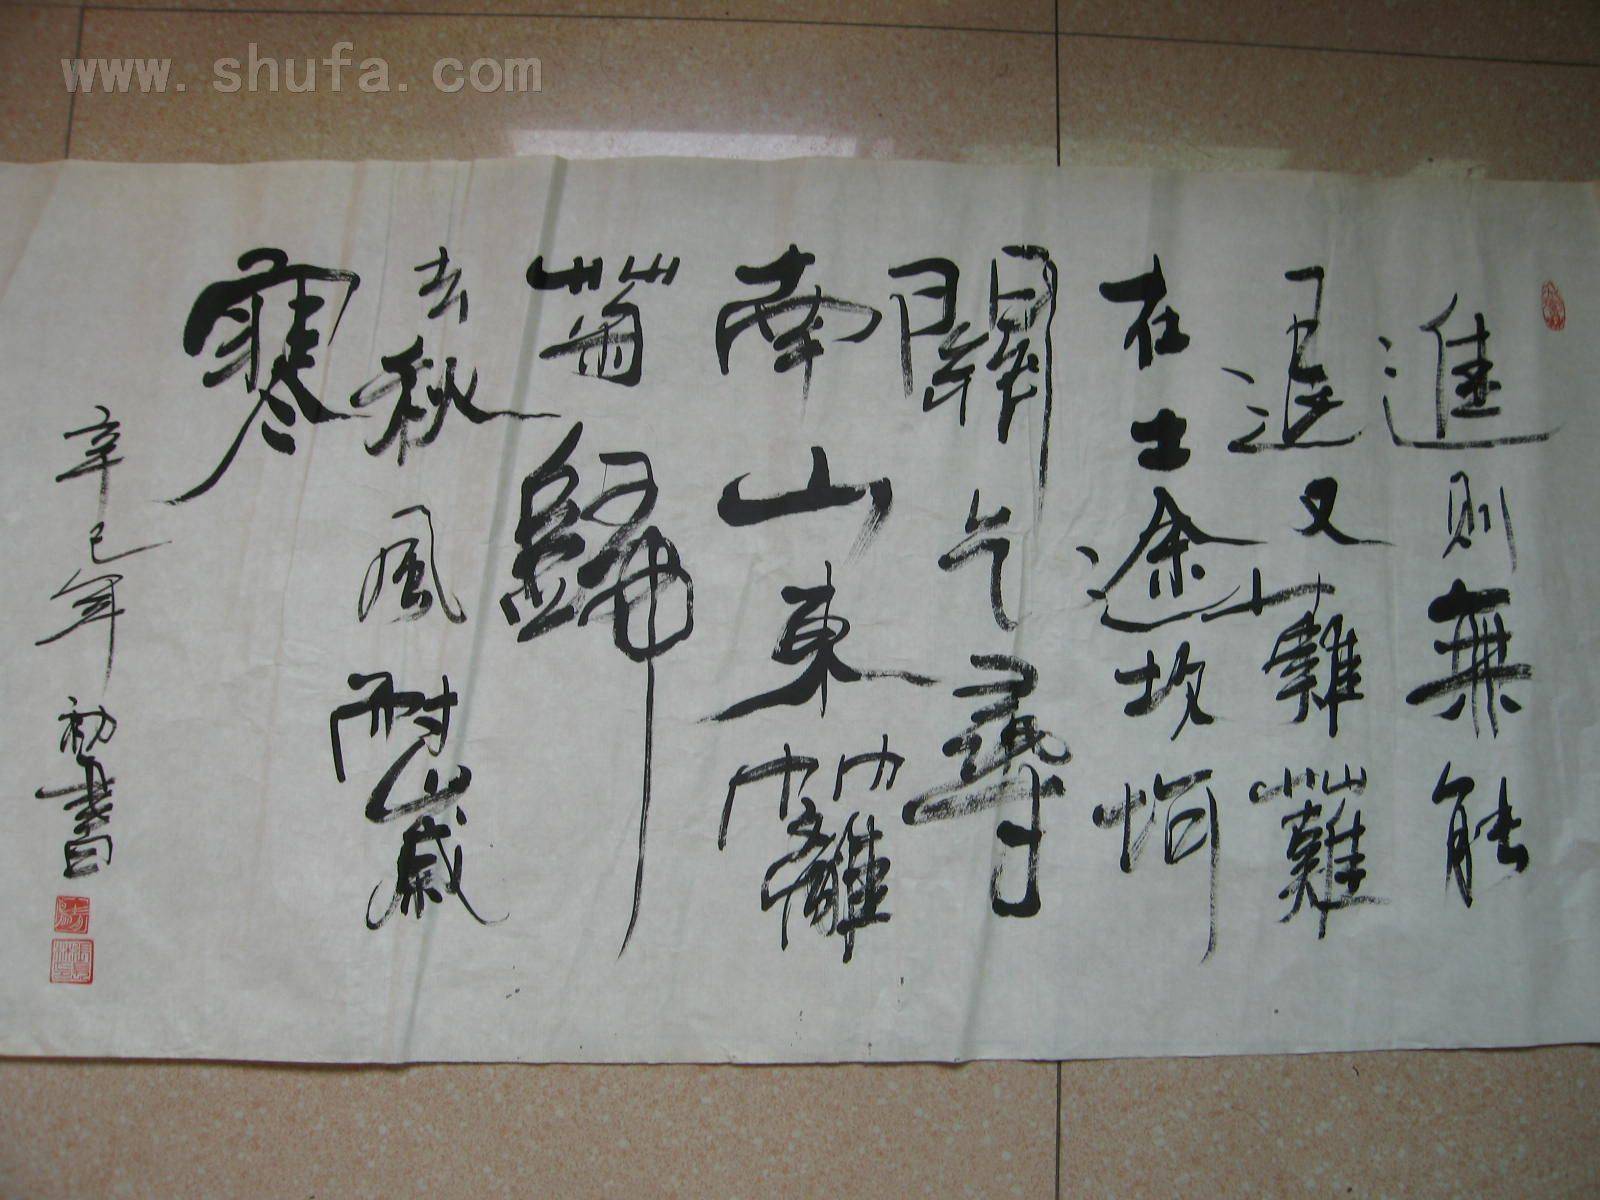 www.shufa.com
進則無能
退又難難
在士途坎坷
關乞尋
南山東籬
菊歸
去秋風耐歲
寒
辛巳年初書